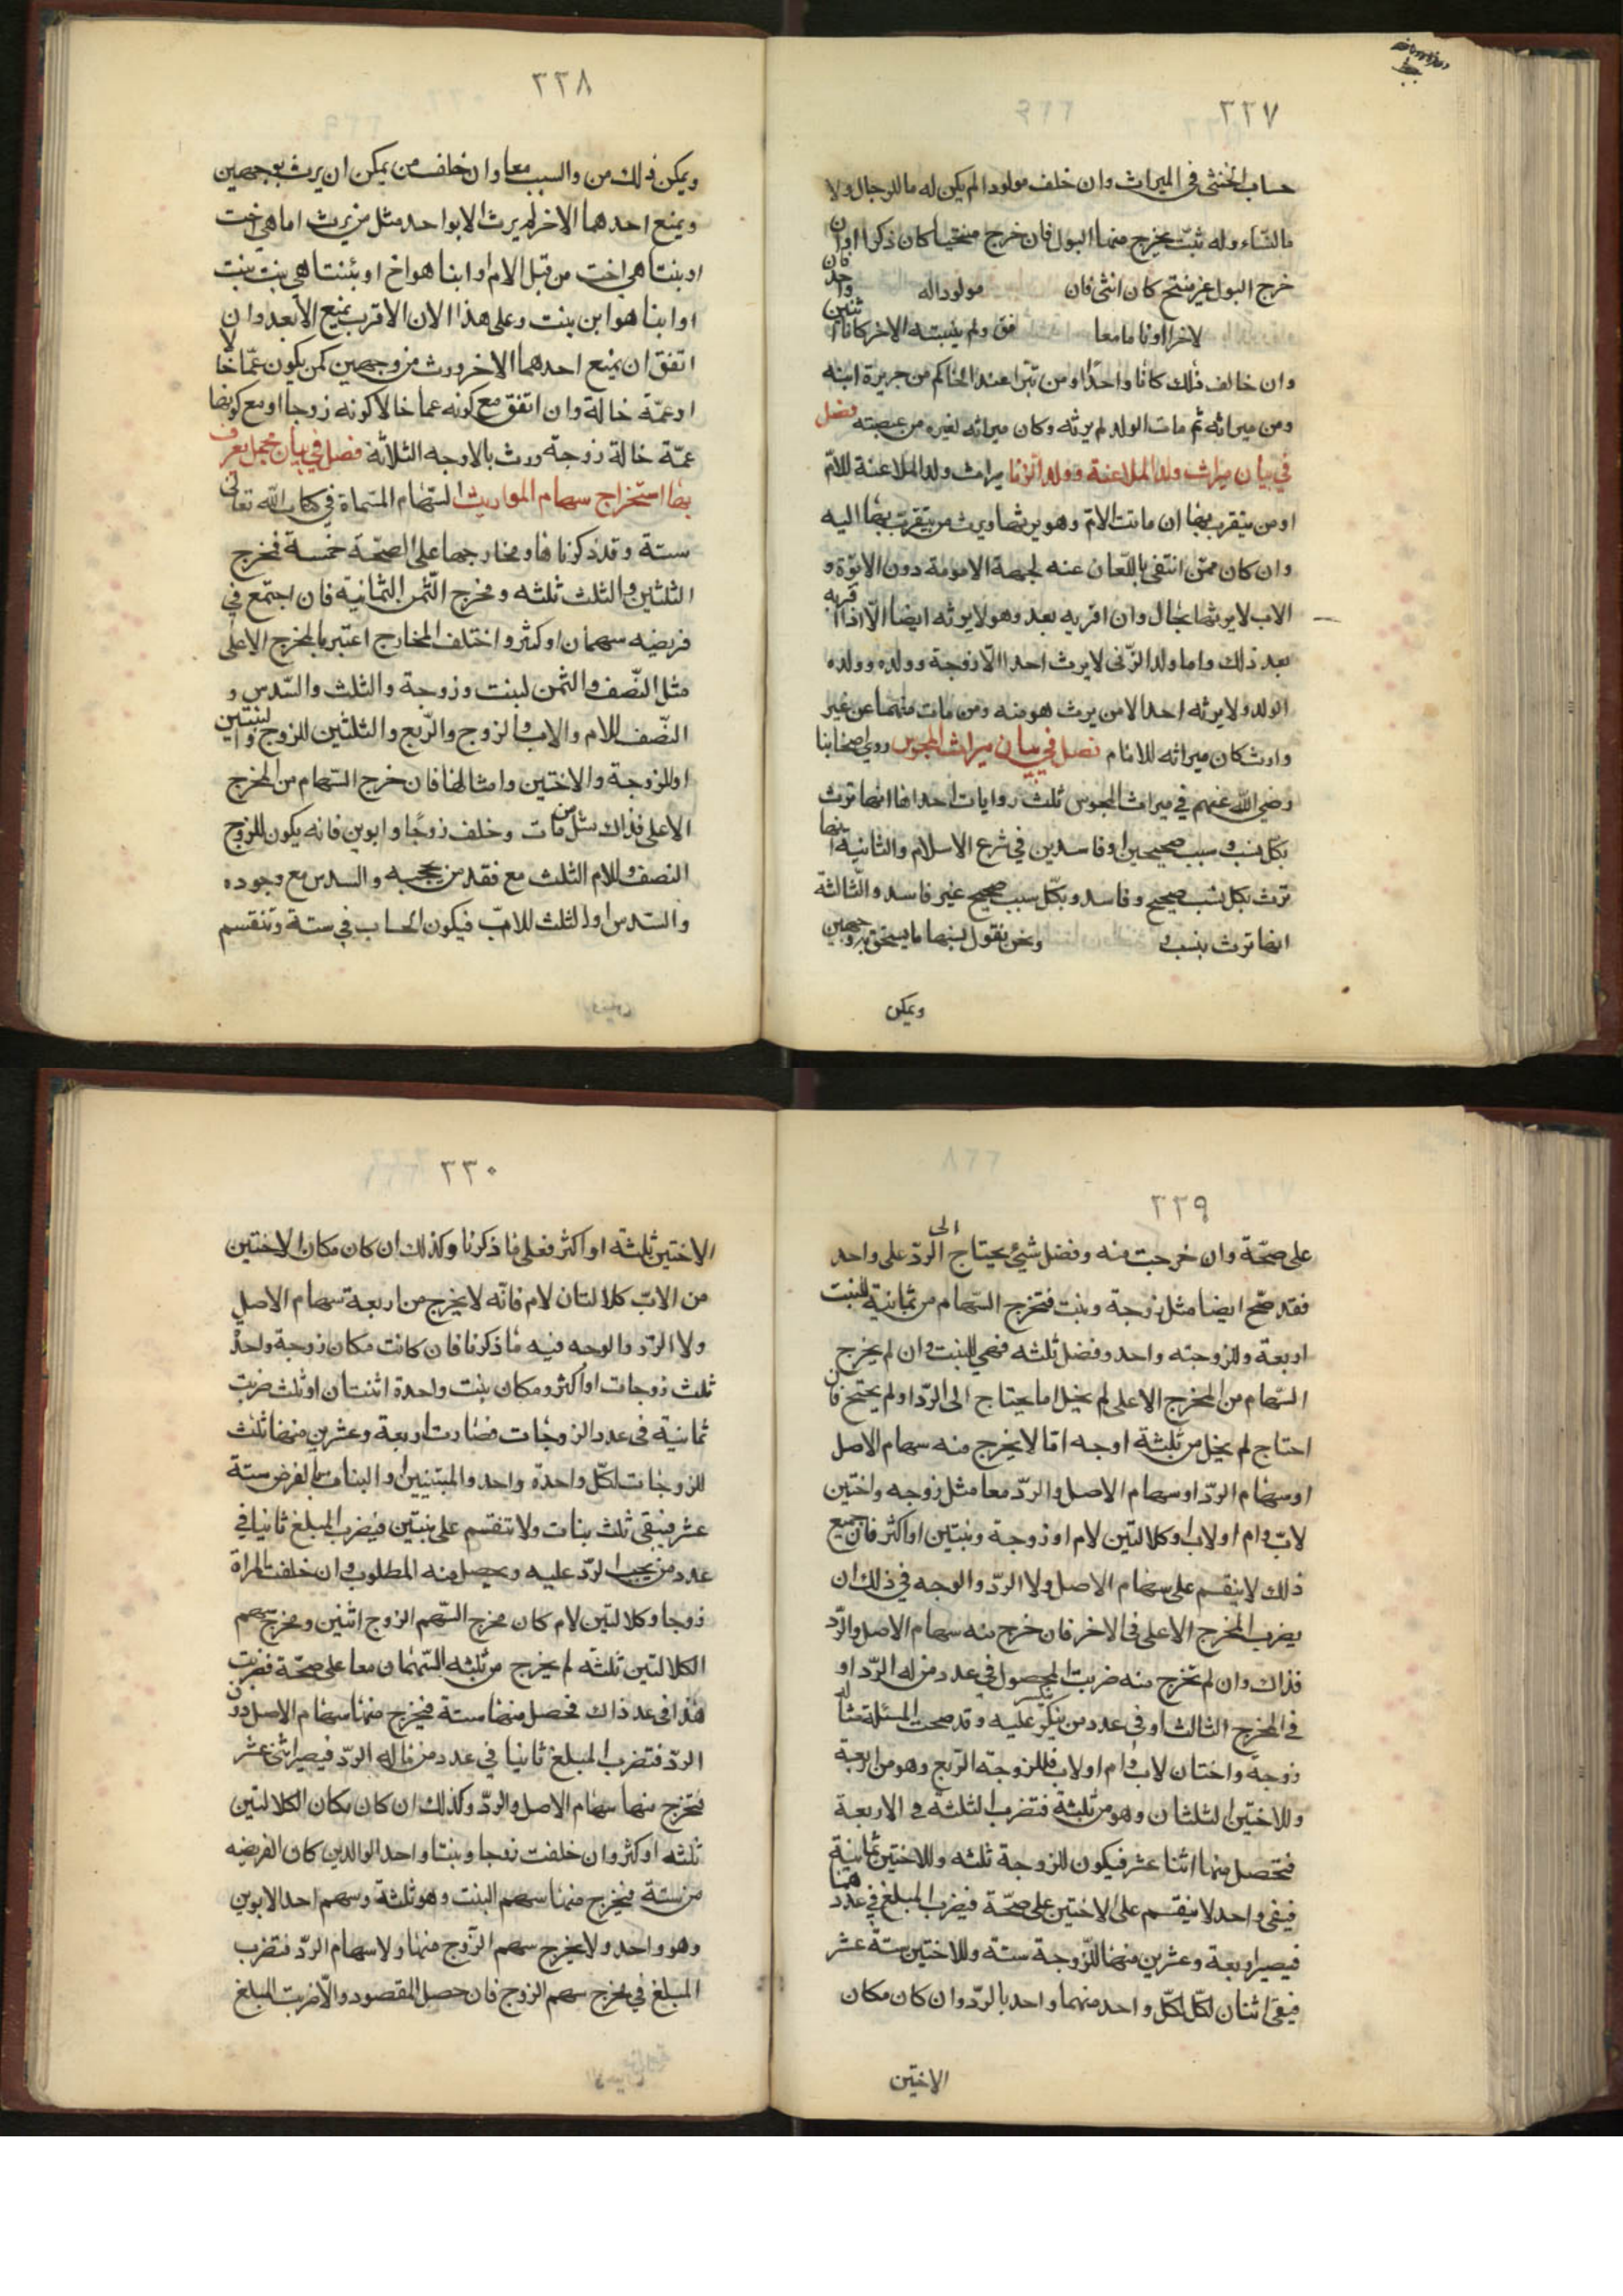 ٢٢٧
حساب الخنثى فى الميراث وان خلف مولودا لم يكن له ما للرجال ولا
ما للنساء وله ثقب يخرج منها البول فان خرج منتحيا كان ذكرا وان
خرج البول غير منتح كان انثى فان مولودا له
لاخرا او ناما معا فق ولم ينبته الاخر كانا اثنين
وان خالف ذلك كانا واحدا ومن تبرا عند الحاكم من جريرة ابنه
ومن ميراثه ثم مات الولد لم يرثه وكان ميراثه لغيره من عصبته فصل
في بيان ميراث ولد الملاعنة وولد الزنا ميراث ولد الملاعنة للام
او من يتقرب بها ان ماتت الام وهو يرثها ويرث من يتقرب بها اليه
وان كان ممن انتفى باللعان عنه لجهة الامومة دون الابوة و
الاب لا يرثها بحال وان اقر به بعد وهو لا يرثه ايضا الا اذا اقر به
بعد ذلك واما ولد الزنى لا يرث احدا الا زوجة وولده وولده
الولد ولا يرثه احد الا من يرث هو منه ومن مات منهما عن غير
وارث كان ميراثه للامام فصل في بيان ميراث المجوس روى اصحابنا
رضى الله عنهم في ميراث المجوس ثلث روايات احداها انها تورث
بكل نسب وسبب صحيحين او فاسدين في شرع الاسلام والثانية انها
ترث بكل نسب صحيح وفاسد وبكل سبب صحيح غير فاسد والثالثة
انها ترث بنسب و ونحن نقول بينها ما يستحق بوجهين
ويمكن
٢٢٨
ويمكن ذلك من والسبب معا وان خلف من يمكن ان يرث بوجهين
ويمنع احدهما الاخر لم يرث الا بواحد مثل من يرث اما هي اخت
او بنتا هي اخت من قبل الام او ابنا هو اخ او بنتا هي بنت بنت
او ابنا هو ابن بنت وعلى هذا الان الاقرب يمنع الابعد وان
اتفق ان يمنع احدهما الاخر ورث من وجهين كمن يكون عما خالا
او عمة خالة وان اتفق مع كونه عما خالا كونه زوجا او مع كونها
عمة خالة زوجة ورث بالاوجه الثلاثة فصل في بيان مجمل يعرف
بها استخراج سهام المواريث السهام المسماة في كتاب الله تعالى
ستة وقد ذكرناها ومخارجها على الصحة خمسة فخرج
الثلثين والثلث ثلثه ومخرج الثمن الثمانية فان اجتمع في
فريضه سهمان او كثر واختلف المخارج اعتبر بالمخرج الاعلى
مثل النصف والثمن لبنت وزوجة والثلث والسدس و
النصف للام والاب والزوج والربع والثلثين للزوج والبنتين
او للزوجة والاختين وامثالها فان خرج السهام من المخرج
الاعلى فذاك مثل من مات وخلف زوجا وابوين فانه يكون للزوج
النصف وللام الثلث مع فقد من يحجبه والسدس مع وجوده
والسدس او الثلث للاب فيكون الحساب في ستة وتنقسم
٢٢٩
على صحة وان خرجت منه وفضل شيئ يحتاج الى الرد على واحد
فقد صح ايضا مثل زوجة وبنت فتخرج السهام من ثمانية للبنت
اربعة وللزوجته واحد وفضل ثلثه فهي للبنت وان لم يخرج
السهام من المخرج الاعلى لم يخل اما يحتاج الى الرد او لم يحتج فان
احتاج لم يخل من ثلثة اوجه اما لا يخرج منه سهام الاصل
او سهام الرد او سهام الاصل والرد معا مثل زوجه واختين
لاب وام او لاب او كلالتين لام او زوجة وبنتين او اكثر فان جميع
ذلك لا ينقسم على سهام الاصل ولا الرد والوجه في ذلك ان
يضرب المخرج الاعلى فى الاخر فان خرج منه سهام الاصل والرد
فذاك وان لم تخرج منه ضربت المحصول في عدد من له الرد او
في المخرج الثالث او في عدد من ينكسر عليه وقد صحت المسئلة مثاله
زوجة واختان لاب وام او لاب فللزوجة الربع وهو من اربعة
وللاختين الثلثان وهو من ثلثة فتضرب الثلثة في الاربعة
فتحصل منها اثنا عشر فيكون للزوجة ثلثه وللاختين ثمانية
فيبقى واحد لا ينقسم على الاختين على صحة فيضرب المبلغ في عددهما
فيصير اربعة وعشرين منها للزوجة ستة وللاختين ستة عشر
فيبقى اثنان لكل لكل واحد منهما واحد بالرد وان كان مكان
الاختين
٢٣٠
الاختين ثلثة او اكثر فعلى ما ذكرنا وكذلك ان كان مكان الاختين
من الاب كلالتان لام فانه لا يخرج من اربعة سهام الاصل
ولا الرد والوجه فيه ما ذكرنا فان كانت مكان زوجة واحدة
ثلث زوجات او اكثر ومكان بنت واحدة اثنتان او ثلث ضربت
ثمانية فى عدد الزوجات فصارت اربعة وعشرين منها ثلث
للزوجات لكل واحدة واحد والبنتين او البنات بالفرض ستة
عشر فيبقى ثلث بنات ولا تنقسم على بنتين فيضرب المبلغ ثانيا في
عدد من يجب الرد عليه ويحصل منه المطلوب وان خلفت المراة
زوجا وكلالتين لام كان مخرج السهم الزوج اثنين ومخرج سهم
الكلالتين ثلثه لم يخرج من ثلثه السهمان معا على صحة فضربت
هذا فى عدد ذاك فحصل منها ستة فيخرج منها سهام الاصل دون
الرد فتضرب المبلغ ثانيا في عدد من ناله الرد فيصير اثنى عشر
فتخرج منها سهام الاصل والرد وكذلك ان كان مكان الكلالتين
ثلثه او اكثر وان خلفت زوجا وبنتا واحد الوالدين كان الفريضه
من ستة فيخرج منها سهم البنت وهو ثلثة وسهم احد الابوين
وهو واحد ولا يخرج سهم الزوج منها ولا سهام الرد فتضرب
المبلغ في مخرج سهم الزوج فان حصل المقصود والا ضربت المبلغ